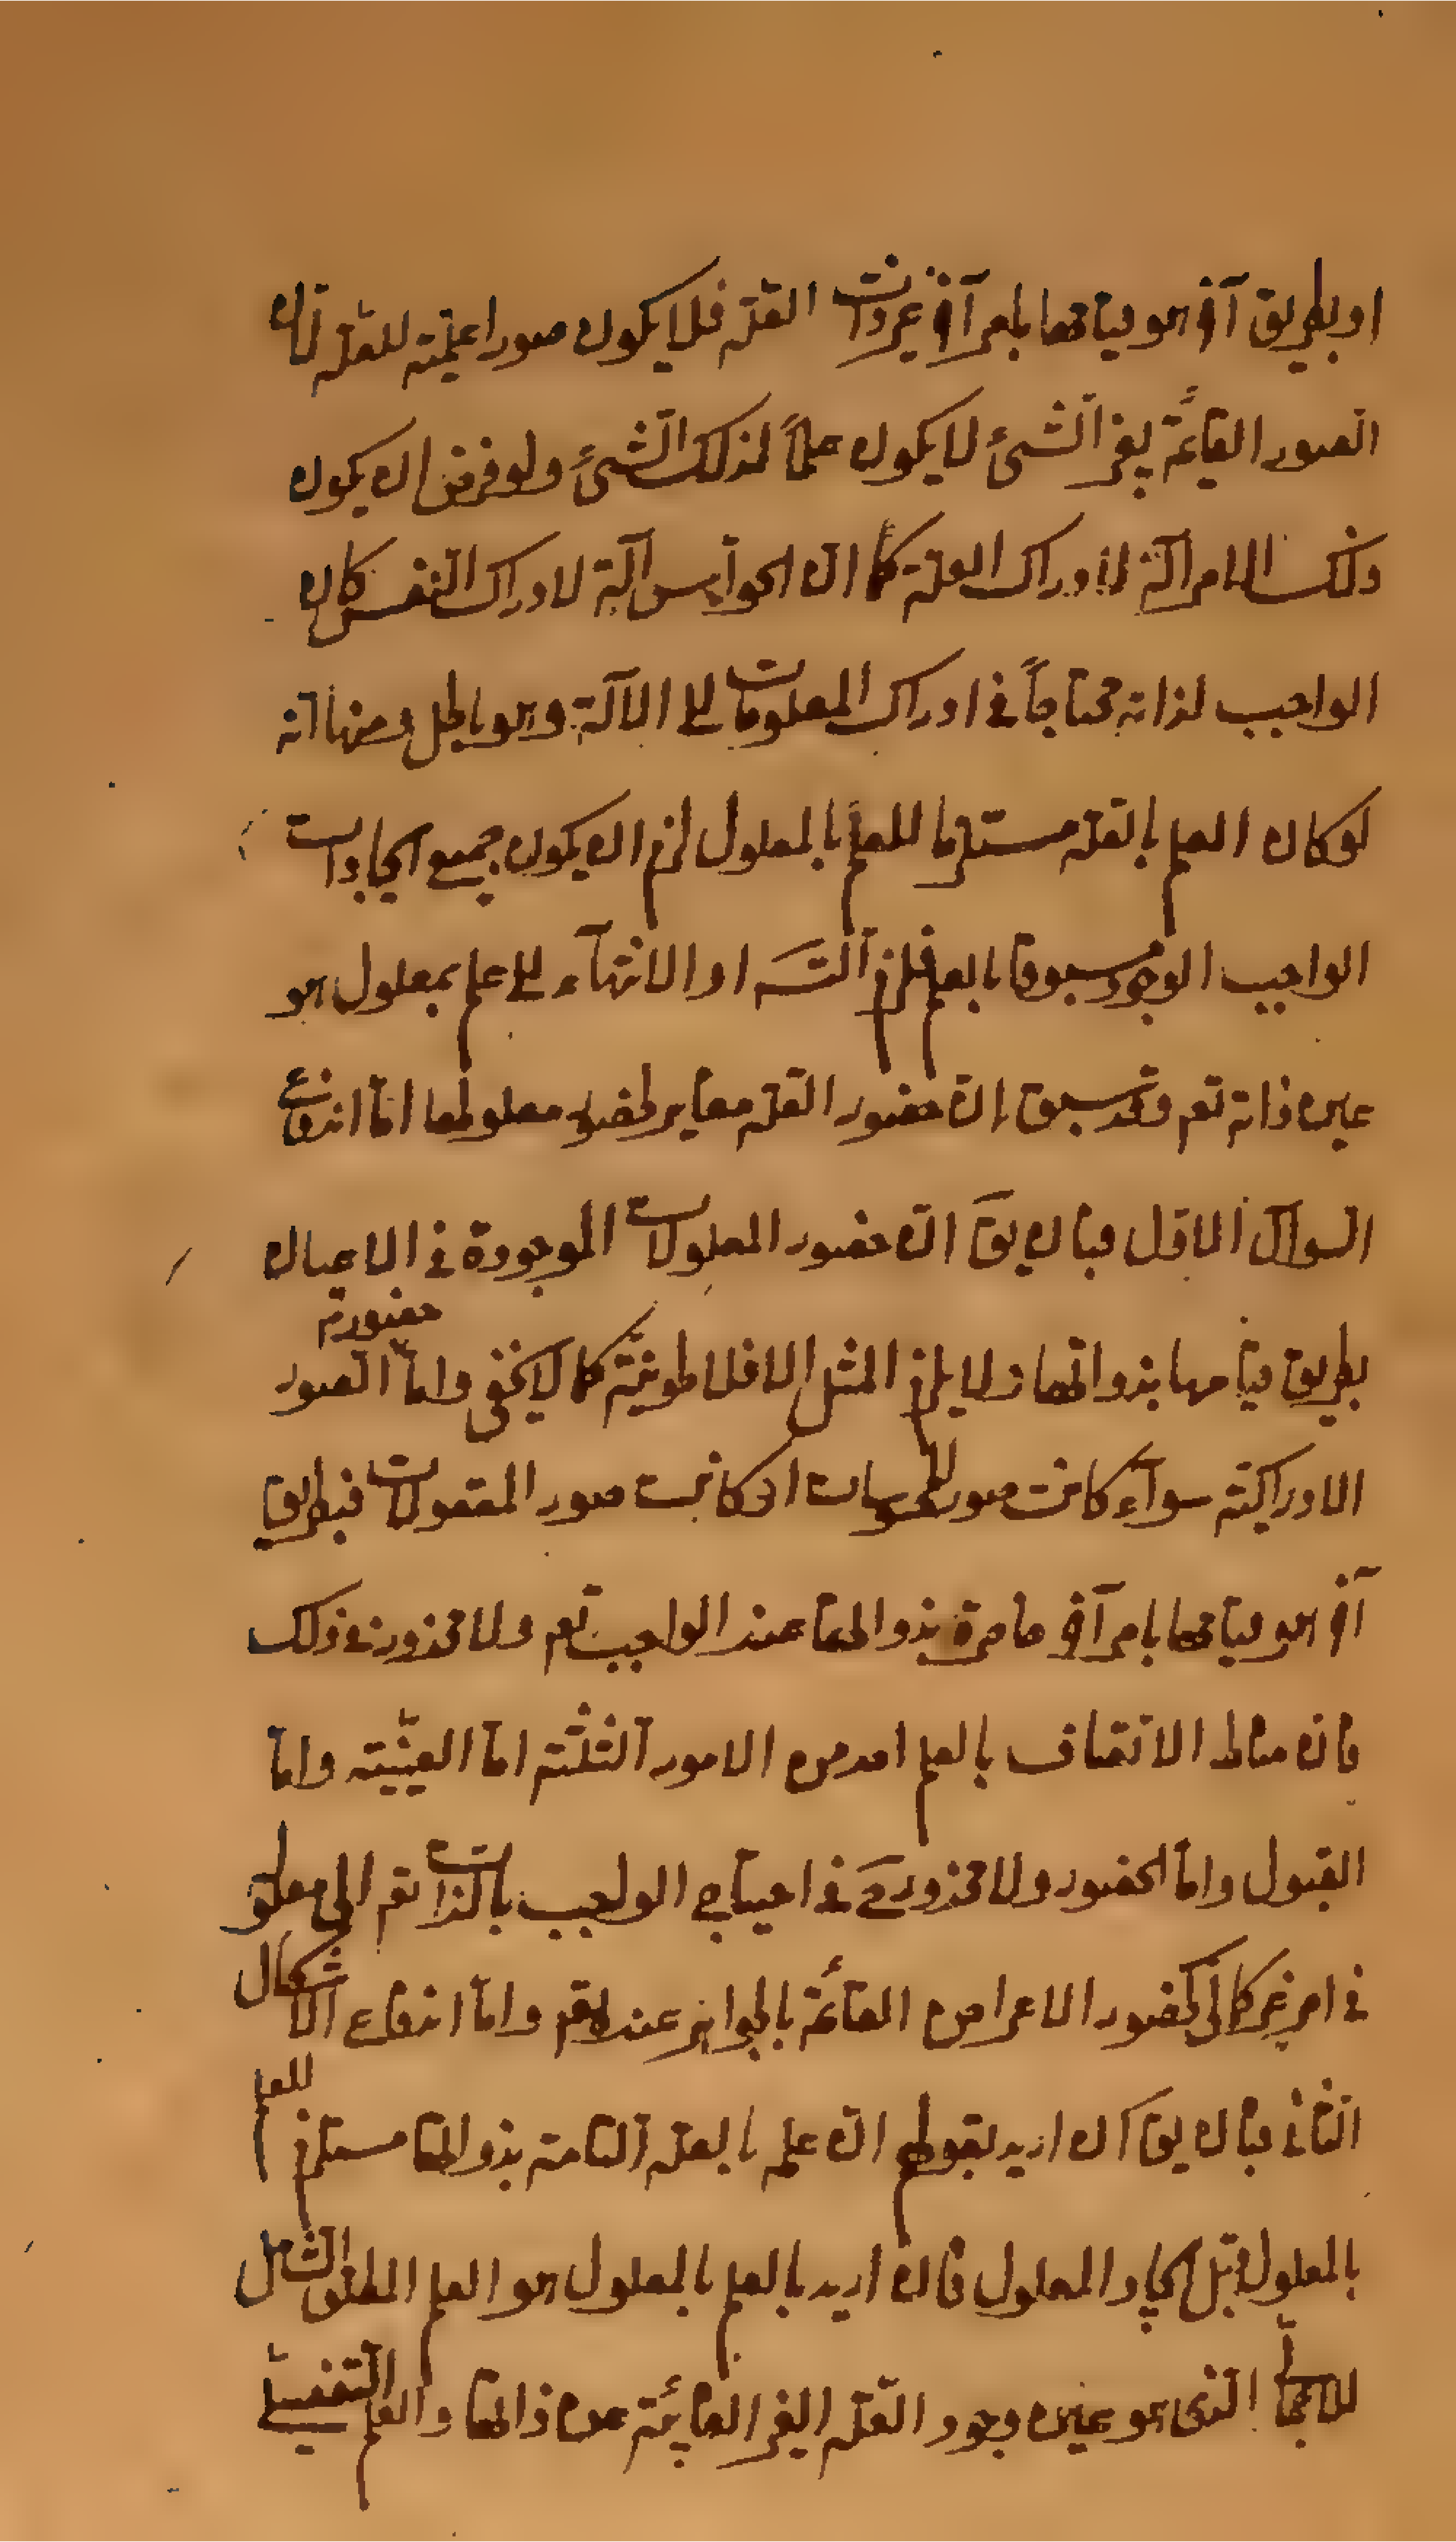 او بطريق آخر هو قيامها بامر آخر غير ذات العلّة فلا يكون صورا علميّة للعلّة لانّ
الصور القائمة بغير الشئ لا يكون علماً لذلك الشئ ولو فرض ان يكون
ذلك الامر آلة لادراك العلة كما انّ الحوآس آلة لادراك النفس كان
الواجب لذاته محتاجاً فى ادراك المعلومات الى الآلة وهو باطل ومنها انه
لو كان العلم بالعلّة مستلزما للعلم بالمعلول لزم ان يكون جميع ايجادات
الواجب الوجود مسبوقا بالعلم فلزم التسَـ او الانتهآء الى علم بمعلول هو
عين ذاته تعم وقد سبق انّ حضور العلّة مغاير لحضور معلولها امّا اندفاع
السؤال الاوّل فبان يقَ انّ حضور المعلولات الموجودة فى الاعيان
بطريق قيامها بذواتها ولا يلزم المثل الافلاطونيّة كما لا يخفى وامّا حضور الصور
الادراكيّة سوآء كانت صور المحسوسات او كانت صور المعقولات فبطريق
آخر هو قيامها بامر آخر حاضرة بذواتها عند الواجب تعم ولا محذور فى ذلك
فانّ مناط الاتّصاف بالعلم احد من الامور الثلثة امّا العينيّة وامّا
القبول وامّا الحضور ولا محذور فى احتياج الواجب بالذات تعم الى معلول
فى امر غير كمالى كحضور الاعراض القائمة بالجواهر عنده تعم وامّا اندفاع الاشكال
الثانى فبان يقَ ان اريد بقولهم انّ علم بالعلّة التامة بذواتها مستلزم للعلم
بالمعلول قبل ايجاد المعلول فان اريد بالعلم بالمعلول هو العلم المطلق الشامل
للاجمالى الذى هو عين وجود العلّة الغير القائمة عن ذاتها والعلم التفصيلى